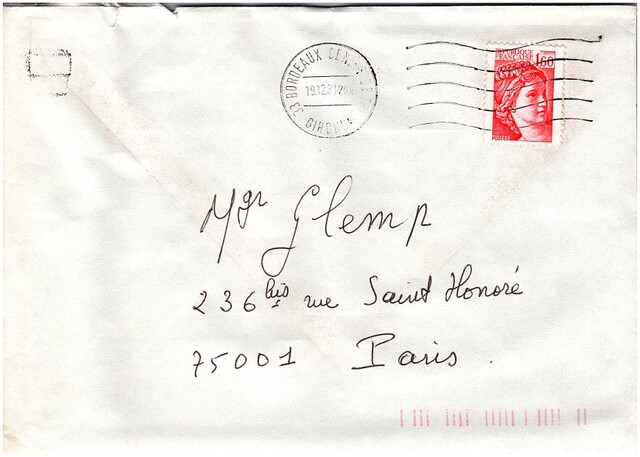 BORDEAUX
19.12.81
33 GIRONDE
REPUBLIQUE
FRANÇAISE
1,60
POSTES
Mgr Glemp
236 bis rue Saint Honoré
75001 Paris.